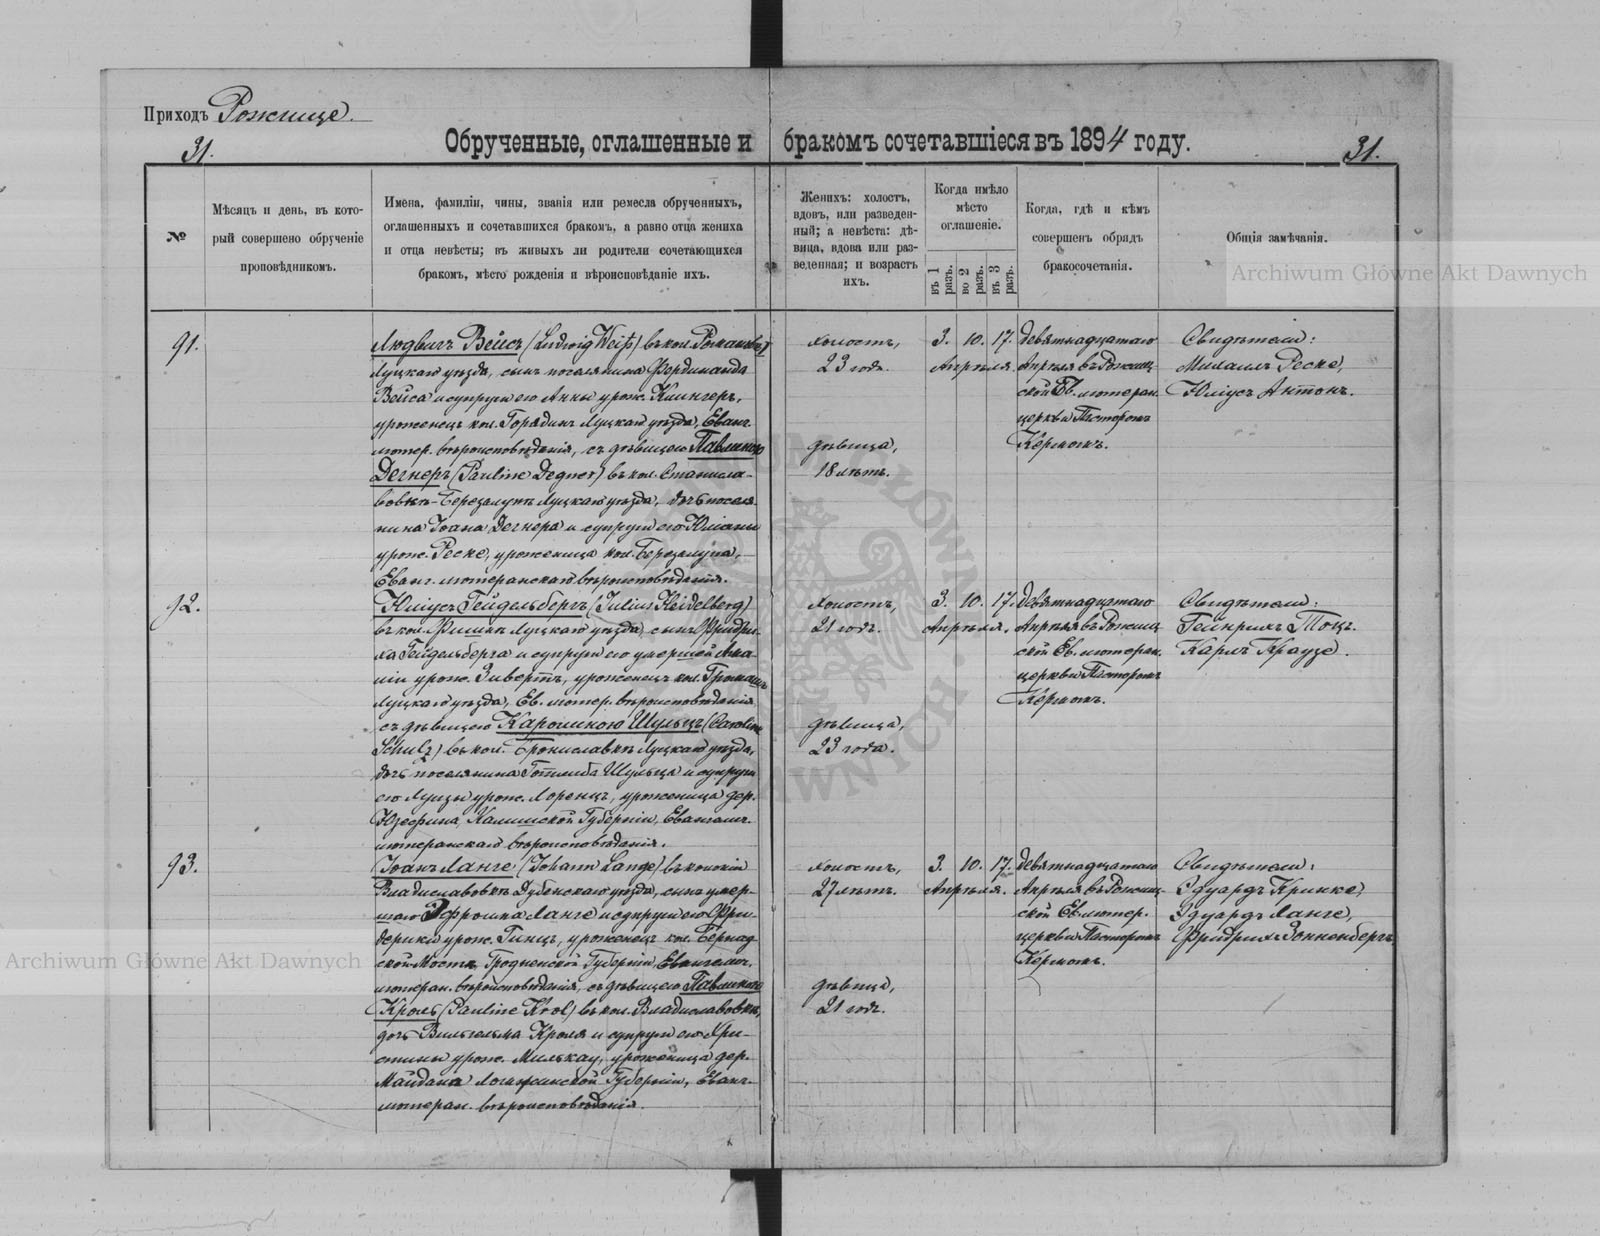 Приходъ Рожище.
Обрученные, оглашенные и бракомъ сочетавшіеся въ 1894 году.
31.
31.
№
Мѣсяцъ и день, въ кото-
рый совершено обрученіе
проповѣдникомъ.
Имена, фамиліи, чины, званія или ремесла обрученныхъ,
оглашенныхъ и сочетавшихся бракомъ, а равно отца жениха
и отца невѣсты; въ живыхъ ли родители сочетающихся
бракомъ, мѣсто рожденія и вѣроисповѣданіе ихъ.
Женихъ: холостъ,
вдовъ, или разведен-
ный; а невѣста: дѣ-
вица, вдова или раз-
веденная; и возрастъ
ихъ.
Когда имѣло
мѣсто
оглашеніе.
въ 1 разъ.
во 2 разъ.
въ 3 разъ.
Когда, гдѣ и кѣмъ
совершенъ обрядъ
бракосочетанія.
Общія замѣчанія.
Archiwum Główne Akt Dawnych
91.
Людвигъ Вейсъ (Ludwig Weiß) въ кол.
Луцкаго уѣзда, сынъ поселянина Фердинанда
Вейса и супруги его Анны урож. Клингеръ,
уроженецъ кол. Луцкаго уѣзда, Еванг.
лютер. вѣроисповѣданія, съ дѣвицею Павлиною
Дегнеръ (Pauline Degner) въ кол. Станисла-
вовкѣ-Березолупѣ Луцкаго уѣзда, дочь поселя-
нина Іоана Дегнера и супруги его Юліаны
урож. Реске, уроженица кол. Березалупа,
Еванг. лютеранскаго вѣроисповѣданія.
холостъ,
23 годъ.
дѣвица,
18 лѣтъ.
3. 10. 17.
Апрѣля.
Девятнадцатаго
Апрѣля въ Рожищ-
ской Ев. лютеран.
церкви Пасторомъ
Кермомъ.
Свидѣтели:
Михаилъ Реске,
Юліусъ Антонъ.
92.
Юліусъ Гейдельбергъ (Julius Heidelberg)
въ кол. Луцкаго уѣзда, сынъ Фридри-
ха Гейдельберга и супруги его умершей Ама-
ліи урож. Зивертъ, уроженецъ кол.
Луцкаго уѣзда, Ев. лютер. вѣроисповѣданія,
съ дѣвицею Каролиною Шульцъ (Caroline
Schulz) въ кол. Брониславкѣ Луцкаго уѣзда,
дочь поселянина Готлиба Шульца и супруги
его Луизы урож. Лоренцъ, уроженица дер.
Юзефина, Калишской Губерніи, Евангел.
лютеранскаго вѣроисповѣданія.
холостъ,
21 годъ.
дѣвица,
23 года.
3. 10. 17.
Апрѣля.
Девятнадцатаго
Апрѣля въ Рожищ-
ской Ев. лютеран.
церкви Пасторомъ
Кермомъ.
Свидѣтели:
Гейнрихъ
Карлъ Краузе.
93.
Іоанъ Ланге (Johann Lange) въ колоніи
Владиславовкѣ Дубенскаго уѣзда, сынъ умер-
шаго Ланге и супруги его Фри-
дерики урож. Гинцъ, уроженецъ кол.
Гродненской Губерніи, Евангелич.
лютеран. вѣроисповѣданія, съ дѣвицею Павлиною
Кроль (Pauline Krol) въ кол. Владиславовкѣ,
дочь Вильгельма Кроля и супруги его Хри-
стины урож. Милькау, уроженица дер.
Майдана Губерніи, Еванг.
лютеран. вѣроисповѣданія.
холостъ,
27 лѣтъ.
дѣвица,
21 годъ.
3. 10. 17.
Апрѣля.
Девятнадцатаго
Апрѣля въ Рожищ-
ской Ев. лютер.
церкви Пасторомъ
Кермомъ.
Свидѣтели:
Эдуардъ Кринке,
Эдуардъ Ланге,
Фридрихъ Зонненбергъ
Archiwum Główne Akt Dawnych